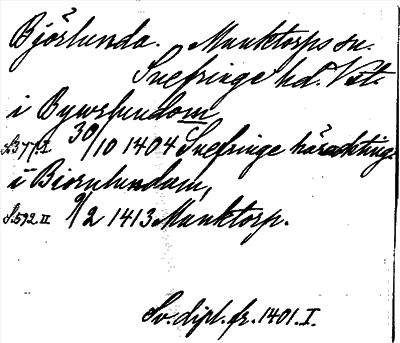 Björlunda. Munktorps sn.
Snefringe hd. Vstm.
i Bywrlundom,
S. 377.I 30/10 1404 Snefringe häradsting.
i Biornlundum,
S. 592 II 9/2 1413 Munktorp.
Sv. dipl. fr. 1401. I.